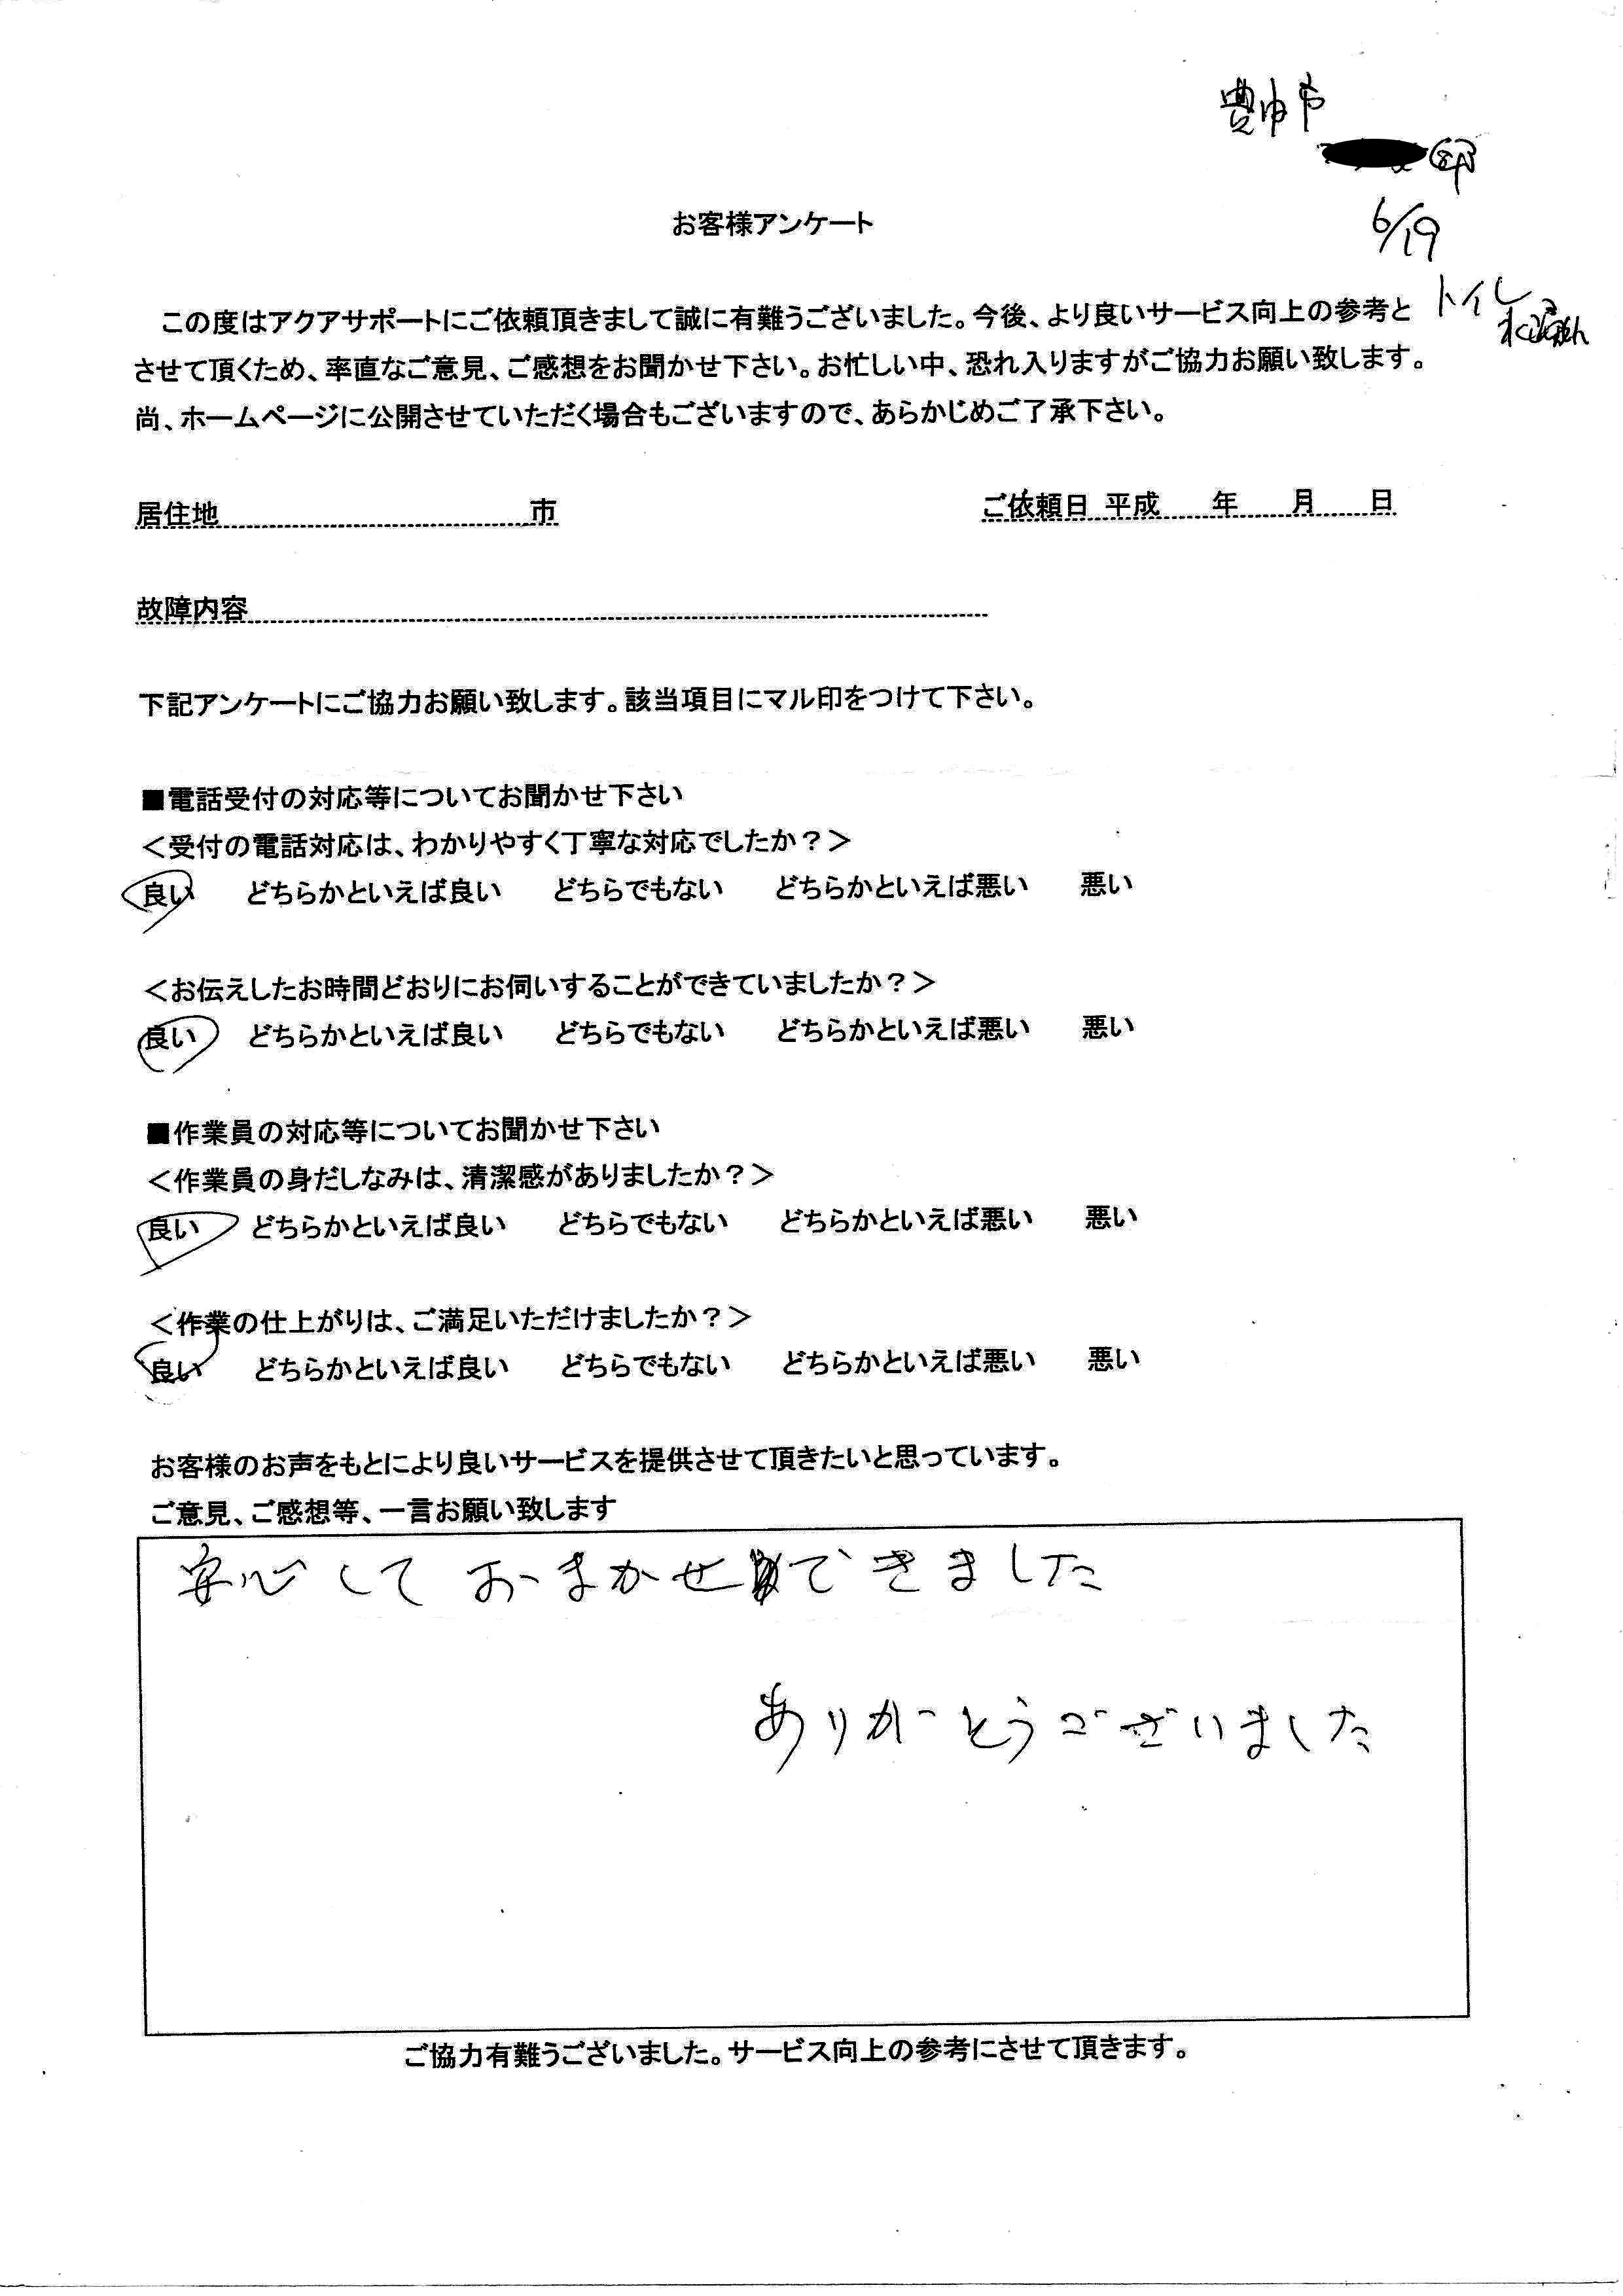 豊中市
邸
6/19
トイレ
水漏れ
お客様アンケート
この度はアクアサポートにご依頼頂きまして誠に有難うございました。今後、より良いサービス向上の参考と
させて頂くため、率直なご意見、ご感想をお聞かせ下さい。お忙しい中、恐れ入りますがご協力お願い致します。
尚、ホームページに公開させていただく場合もございますので、あらかじめご了承下さい。
居住地 市 ご依頼日 平成 年 月 日
故障内容
下記アンケートにご協力お願い致します。該当項目にマル印をつけて下さい。
■電話受付の対応等についてお聞かせ下さい
＜受付の電話対応は、わかりやすく丁寧な対応でしたか？＞
良い どちらかといえば良い どちらでもない どちらかといえば悪い 悪い
＜お伝えしたお時間どおりにお伺いすることができていましたか？＞
良い どちらかといえば良い どちらでもない どちらかといえば悪い 悪い
■作業員の対応等についてお聞かせ下さい
＜作業員の身だしなみは、清潔感がありましたか？＞
良い どちらかといえば良い どちらでもない どちらかといえば悪い 悪い
＜作業の仕上がりは、ご満足いただけましたか？＞
良い どちらかといえば良い どちらでもない どちらかといえば悪い 悪い
お客様のお声をもとにより良いサービスを提供させて頂きたいと思っています。
ご意見、ご感想等、一言お願い致します
安心して おまかせできました
ありがとうございました
ご協力有難うございました。サービス向上の参考にさせて頂きます。